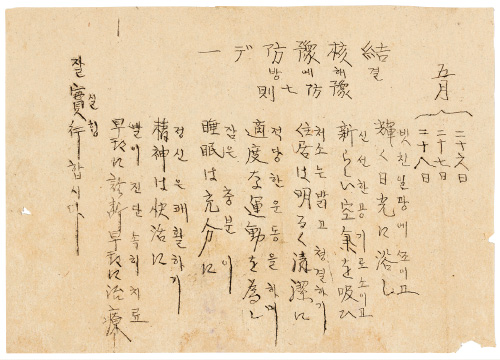 五月
二十六日
二十七日
二十八日
結核豫防デー
결해예방
豫防七則
빗친일광에쏘이고
輝く日光に浴し
신선한공기로소이고
新らしい空氣を吸ひ
처소는밝고청결하기
住居は明るく清潔に
적당한운동을하며
適度な運動を為し
잠은충분이
睡眠は充分に
정신은쾌활하기
精神は快活に
빨이진단속히치료
早期に診斷早期に治療
실행
잘實行합시다